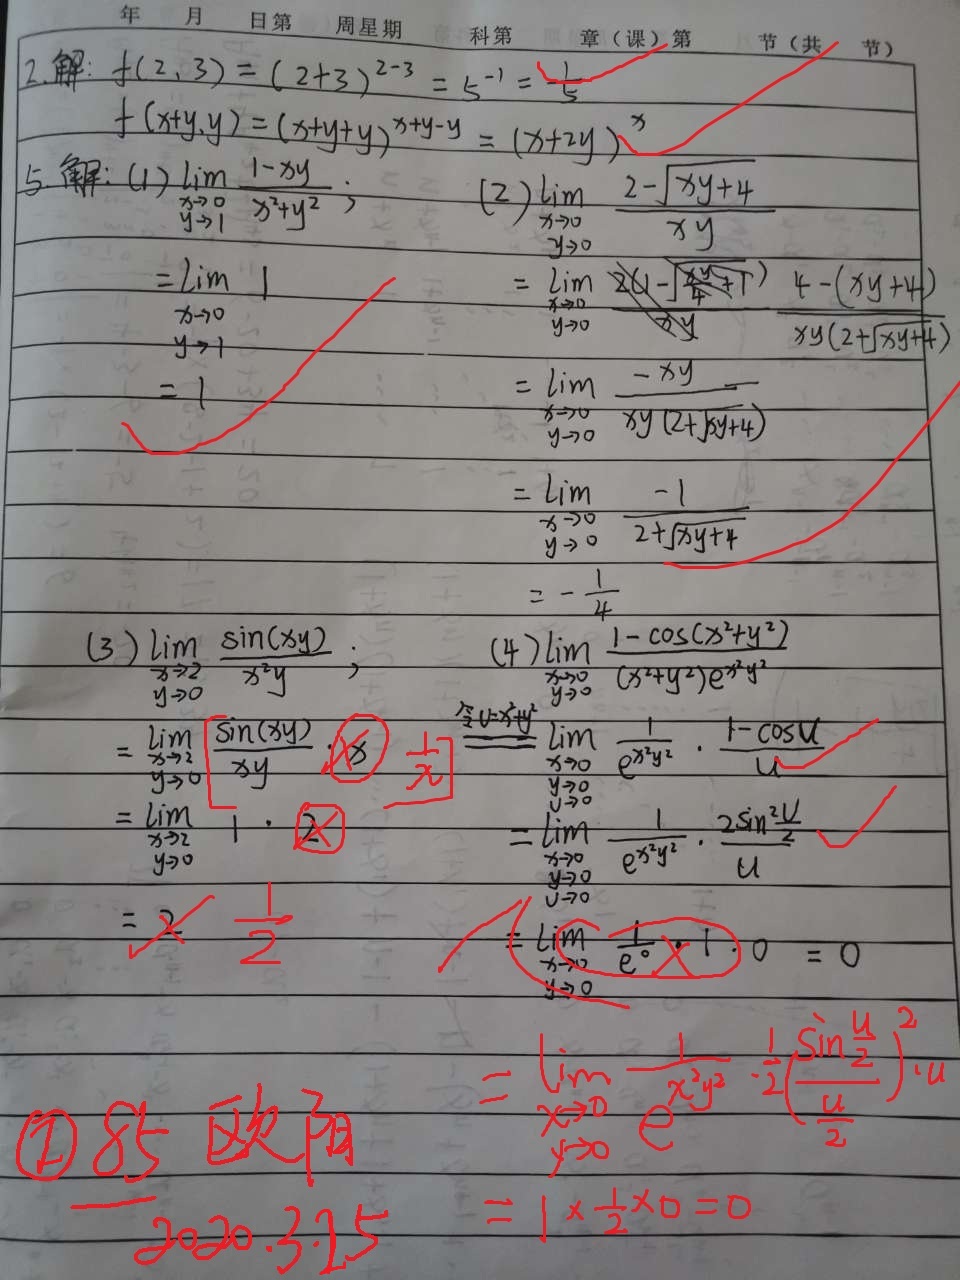 年 月 日第 周星期 科第 章(课)第 节(共 节)
2.解: f(2,3) = (2+3)^{2-3} = 5^{-1} = \frac{1}{5}
f(x+y,y) = (x+y+y)^{x+y-y} = (x+2y)^x
5.解:(1) \lim_{x→0, y→1} \frac{1-xy}{x²+y²};
= \lim_{x→0, y→1} 1
= 1
(2) \lim_{x→0, y→0} \frac{2-\sqrt{xy+4}}{xy}
= \lim_{x→0, y→0} \frac{2(1-\sqrt{\frac{xy}{4}+1})}{xy} \frac{4-(xy+4)}{xy(2+\sqrt{xy+4})}
= \lim_{x→0, y→0} \frac{-xy}{xy(2+\sqrt{xy+4})}
= \lim_{x→0, y→0} \frac{-1}{2+\sqrt{xy+4}}
= -\frac{1}{4}
(3) \lim_{x→2, y→0} \frac{sin(xy)}{x²y};
= \lim_{x→2, y→0} [\frac{sin(xy)}{xy} · x \frac{1}{x}]
= \lim_{x→2, y→0} 1 · 2
= 2 \frac{1}{2}
(4) \lim_{x→0, y→0} \frac{1-cos(x²+y²)}{(x²+y²)e^{x²y²}}
令u=x²+y² = \lim_{x→0, y→0, u→0} \frac{1}{e^{x²y²}} · \frac{1-cosu}{u}
= \lim_{x→0, y→0, u→0} \frac{1}{e^{x²y²}} · \frac{2sin²\frac{u}{2}}{u}
= \lim_{x→0, y→0} \frac{1}{e^0} · 1 · 0 = 0
= \lim_{x→0, y→0} \frac{1}{e^{x²y²}} · \frac{1}{2} (\frac{sin\frac{u}{2}}{\frac{u}{2}})² · u
= 1 × \frac{1}{2} × 0 = 0
① 85 欧阳
2020.3.25